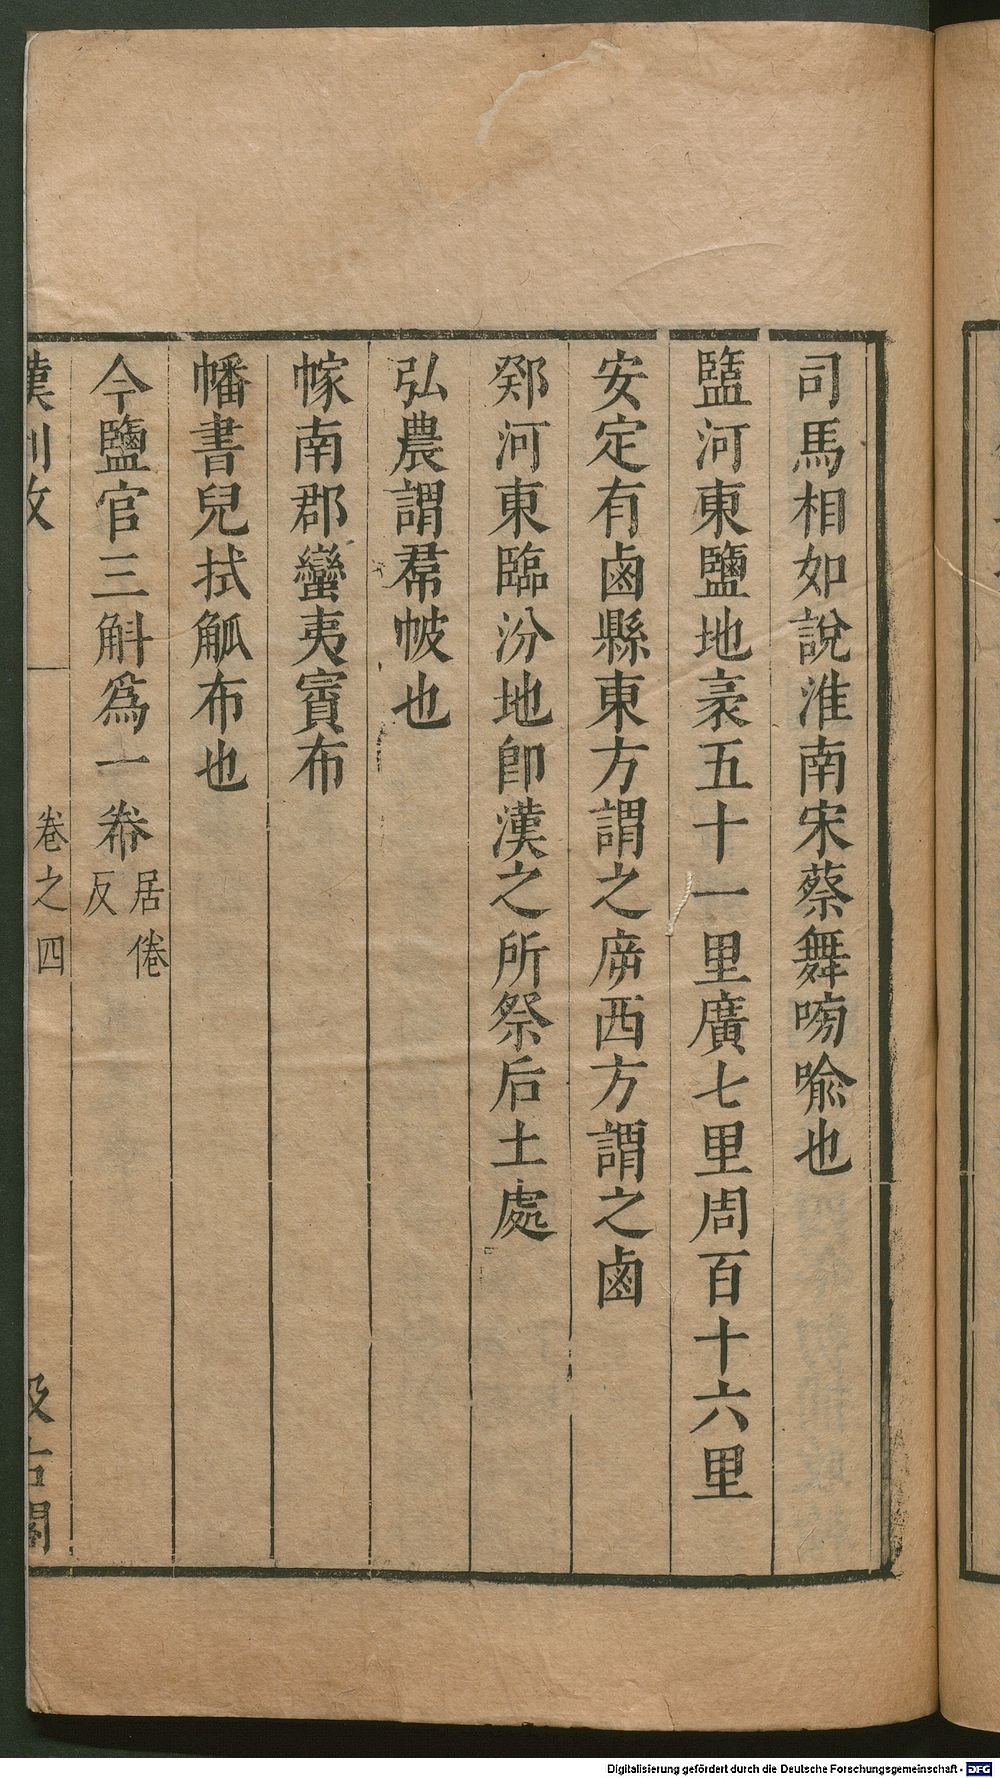 司馬相如說淮南宋蔡舞嗙喻也
鹽河東鹽地袤五十一里廣七里周百十六里
安定有鹵縣東方謂之㡿西方謂之鹵
郊河東臨汾地卽漢之所祭后土處
弘農謂帬帔也
幏南郡蠻夷賨布
幡書兒拭觚布也
今鹽官三斛爲一䊵居倦反
卷之四
汲古閣
Digitalisierung gefördert durch die Deutsche Forschungsgemeinschaft - DFG